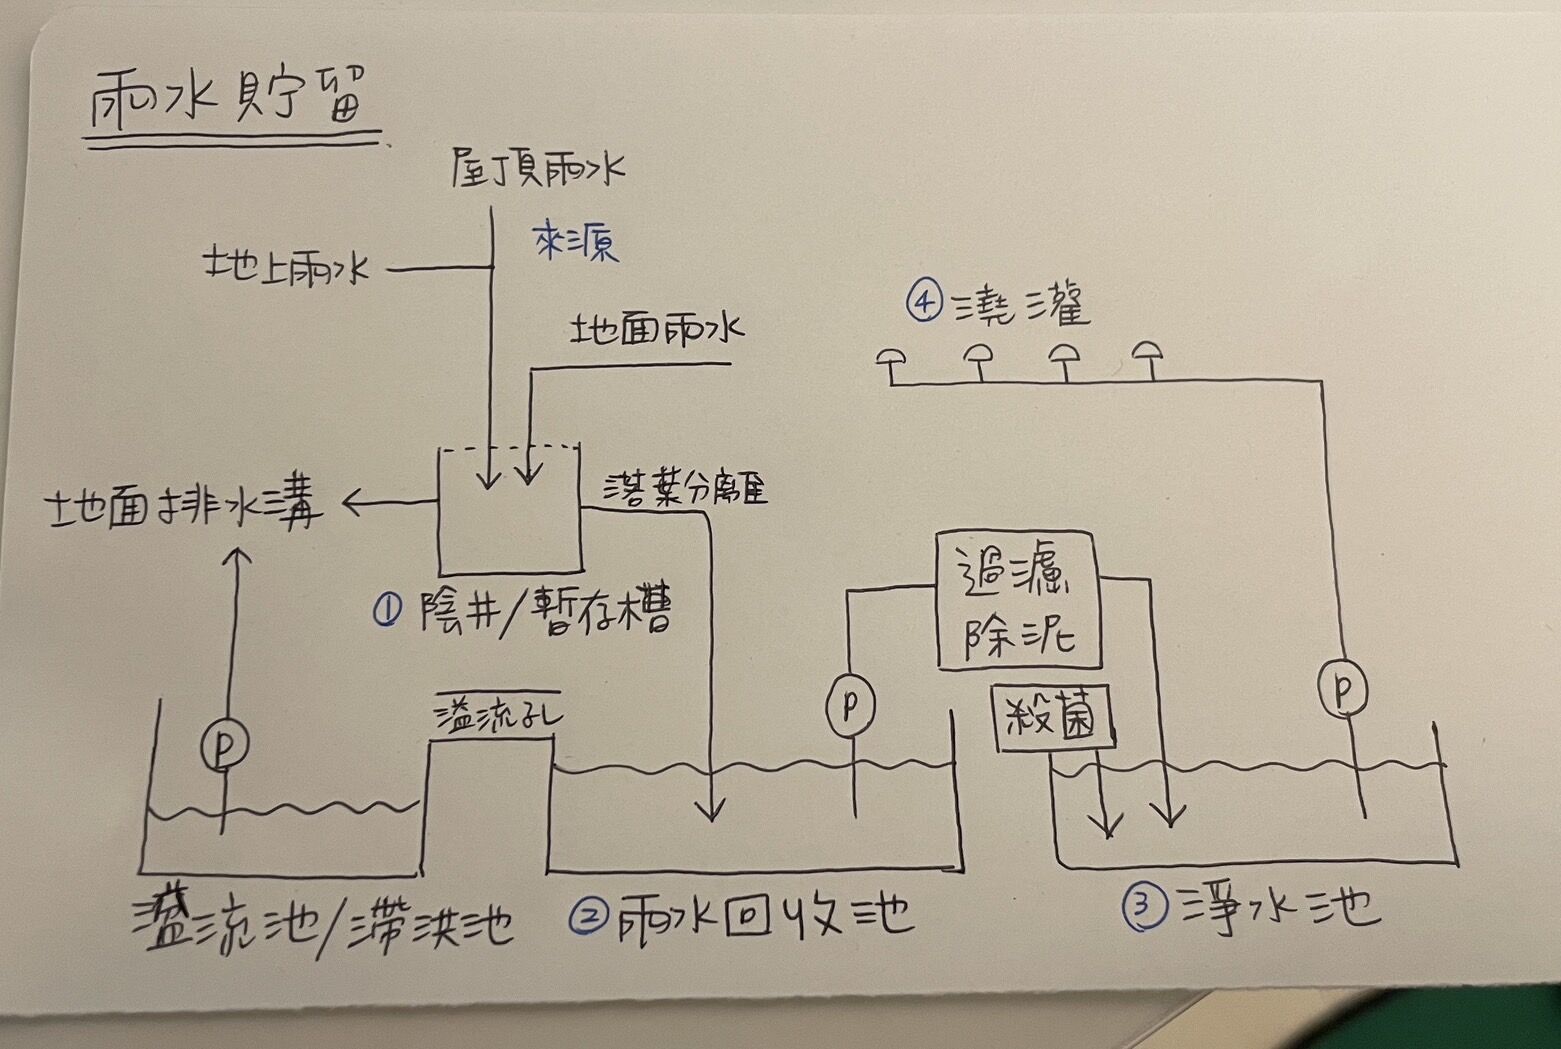 雨水貯留
屋頂雨水
來源
地上雨水
地面雨水
④澆灌
地面排水溝
落葉分離
①陰井/暫存槽
過濾
除泥
溢流孔
P
P
P
殺菌
溢流池/滯洪池
②雨水回收池
③淨水池